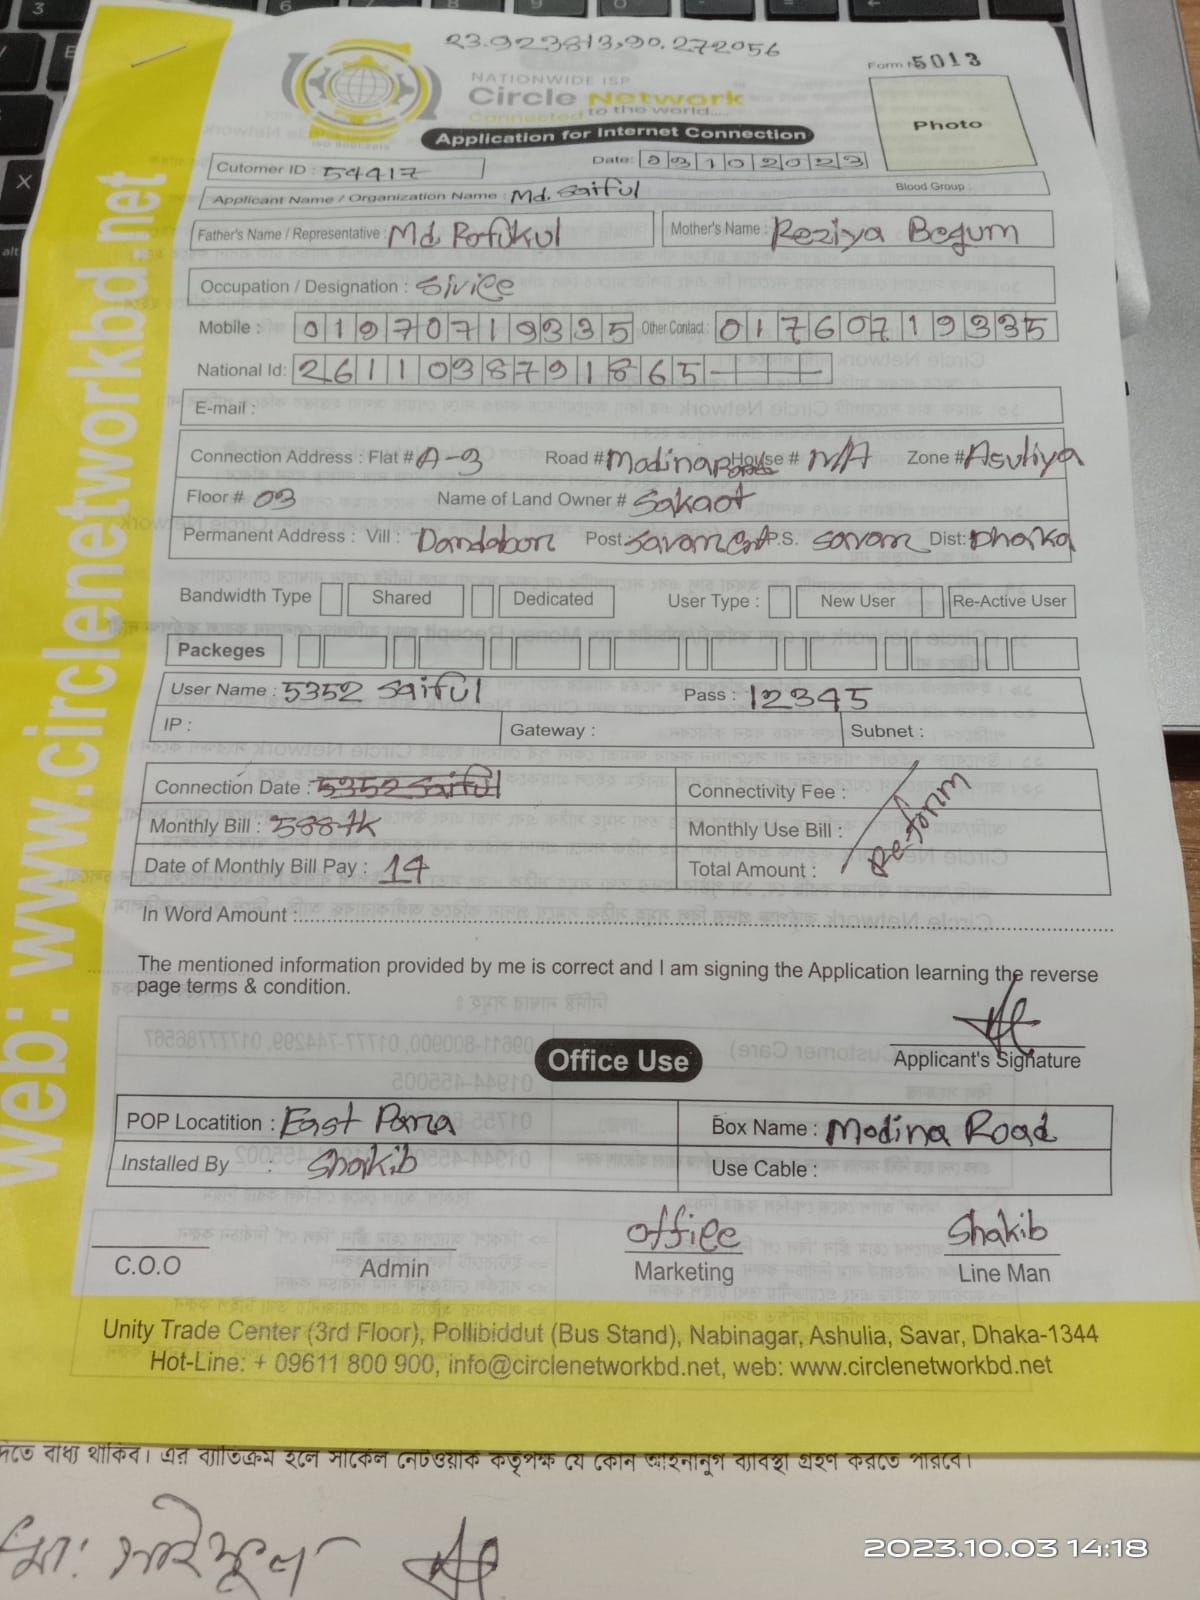 23.923813,90.272056
NATIONWIDE ISP
Circle Network
Connected to the world....
ISO 9001:2015
Application for Internet Connection
Form 5013
Photo
Cutomer ID : 54417
Date: 03102023
Applicant Name / Organization Name : Md. Saiful
Blood Group :
Father's Name / Representative : Md. Rofikul
Mother's Name : Reziya Begum
Occupation / Designation :
Mobile : 01970719335 Other Contact : 01760719335
National Id: 2611038791865
E-mail :
Connection Address : Flat # A-3 Road # Modina House # N/A Zone # Asuliya
Floor # 03 Name of Land Owner # Sakaot
Permanent Address : Vill : Dandabon Post: Savar Cnt P.S. Savar Dist: Dhaka
Bandwidth Type Shared Dedicated User Type : New User Re-Active User
Packeges
User Name : 5352 Saiful Pass : 12345
IP : Gateway : Subnet :
Connection Date : 5352 Saiful Connectivity Fee :
Monthly Bill : Monthly Use Bill :
Date of Monthly Bill Pay : 14 Total Amount :
In Word Amount :
The mentioned information provided by me is correct and I am signing the Application learning the reverse
page terms & condition.
Applicant's Signature
Office Use
POP Locatition : East Para Box Name : Modina Road
Installed By : Shakib Use Cable :
office Shakib
C.O.O Admin Marketing Line Man
Unity Trade Center (3rd Floor), Pollibiddut (Bus Stand), Nabinagar, Ashulia, Savar, Dhaka-1344
Hot-Line: + 09611 800 900, info@circlenetworkbd.net, web: www.circlenetworkbd.net
web: www.circlenetworkbd.net
দিতে বাধ্য থাকিব। এর ব্যতিক্রম হলে সার্কেল নেটওয়ার্ক কর্তৃপক্ষ যে কোন আইনানুগ ব্যবস্থা গ্রহণ করতে পারবে।
মো: সাইফুল
2023.10.03 14:18